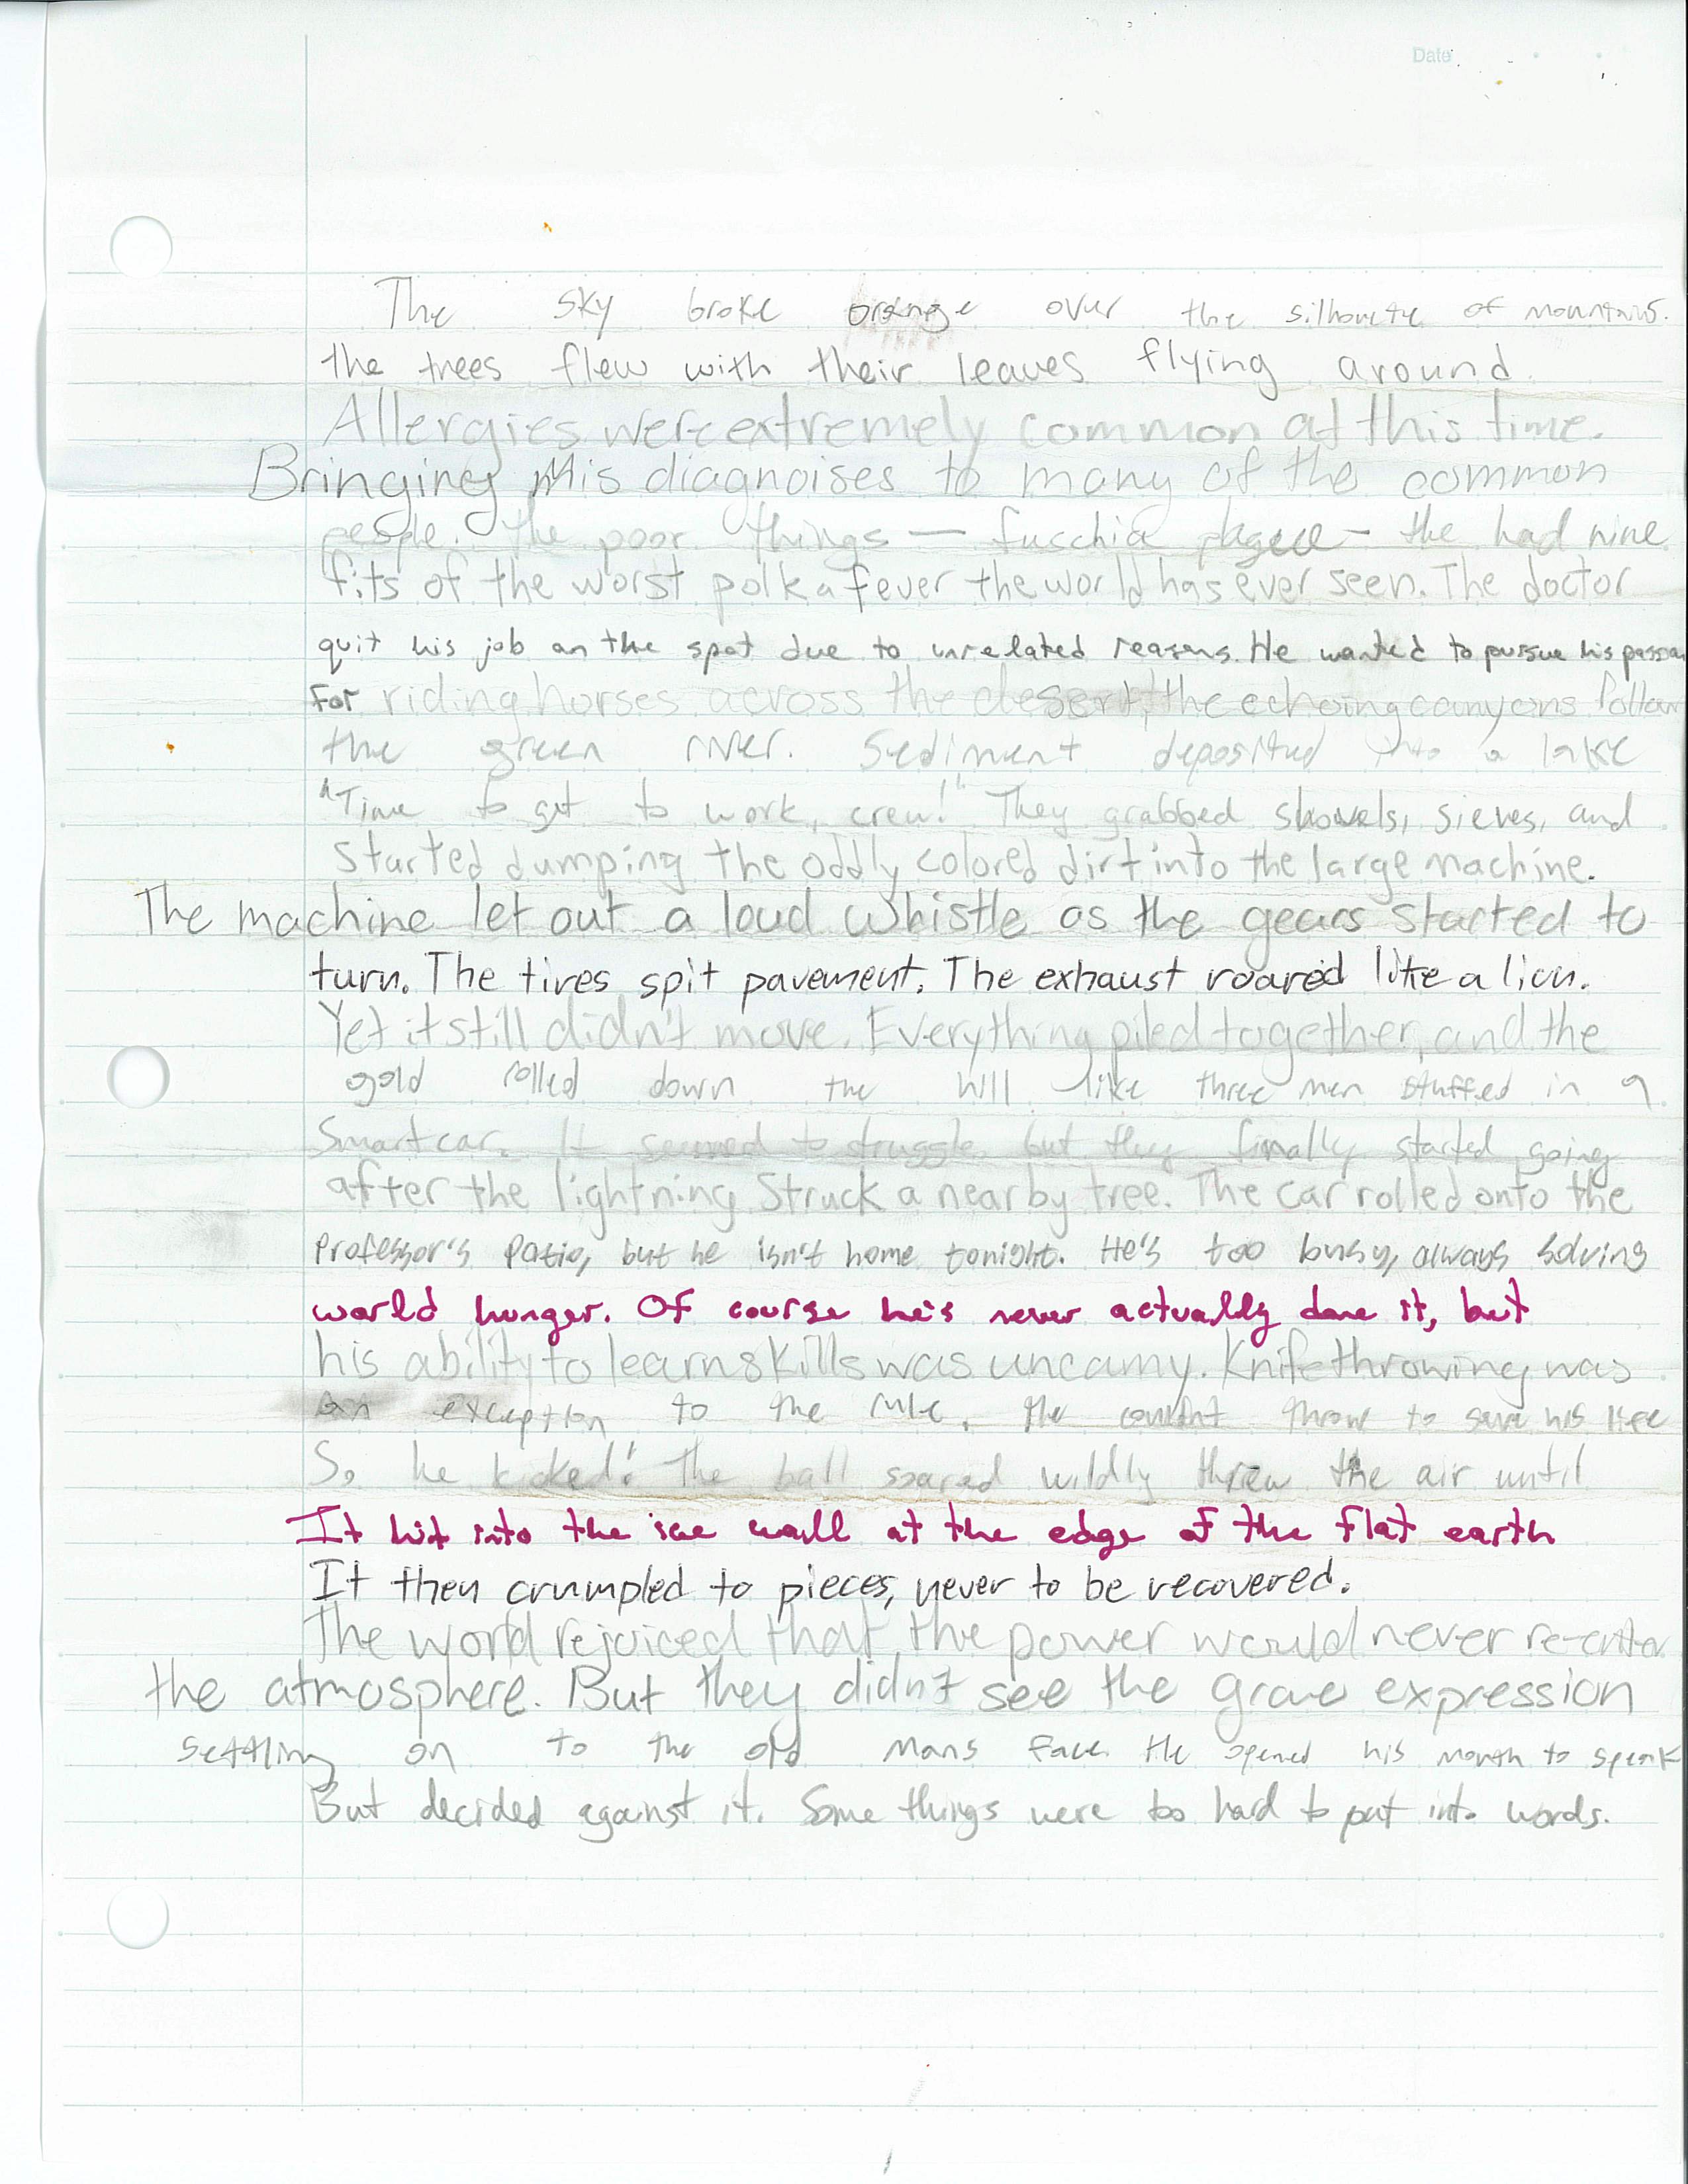 Date
The sky broke orange over the silhouete of mountains.
the trees flew with their leaves flying around.
Allergies were extremely common at this time.
Bringing Mis diagnoises to many of the common
people. The poor things — fuschia plague — the had nine
fits of the worst polka fever the world has ever seen. The doctor
quit his job on the spot due to unrelated reasons. He wanted to pursue his passion
For riding horses across the desert, the echoing canyons follow
the green river. Sediment deposited into a lake
"Time to get to work, crew!" They grabbed shovels, sieves, and
started dumping the oddly colored dirt into the large machine.
The machine let out a loud whistle as the gears started to
turn. The tires spit pavement. The exhaust roared like a lion.
Yet it still didn't move. Everything piled together, and the
gold rolled down the hill like three men stuffed in a
Smart car. It seemed to struggle, but they finally started going
after the lightning struck a nearby tree. The car rolled onto the
Professor's Patio, but he isn't home tonight. He's too busy, always solving
world hunger. Of course he's never actually done it, but
his ability to learn skills was uncanny. Knife throwing was
an exception to the rule. He couldnt throw to save his life
So he kicked! The ball soared wildly threw the air until
It hit into the ice wall at the edge of the flat earth
It then crumpled to pieces, never to be recovered.
The world rejoiced that the power would never re-enter
the atmosphere. But they didn't see the grave expression
settling on to the old mans face. He opened his mouth to speak
But decided against it. Some things were too hard to put into words.